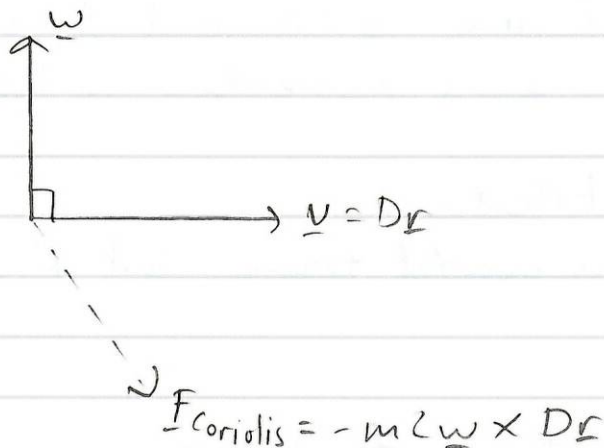 w
v = Dr
F Coriolis = -m2w × Dr